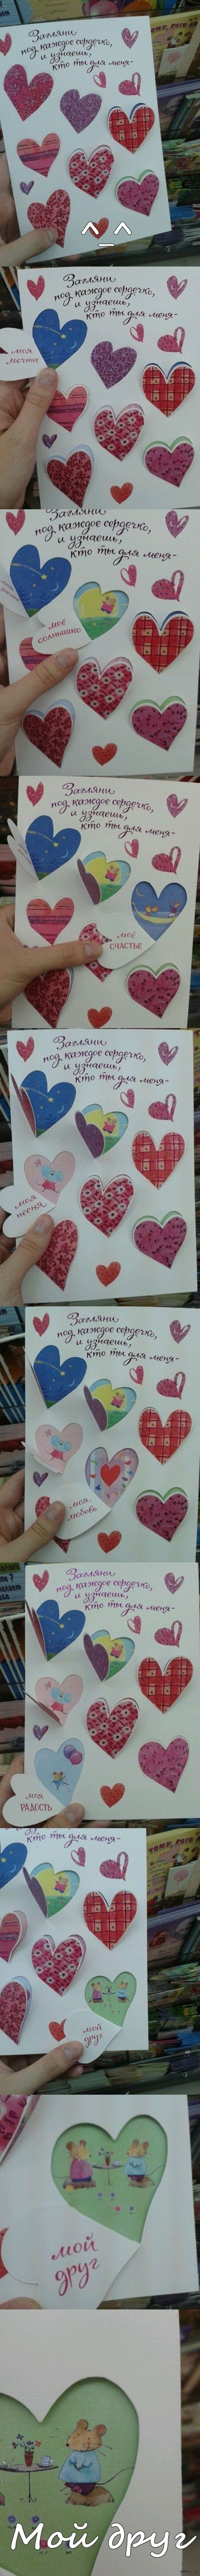 Загляни
под каждое сердечко,
и узнаешь,
кто ты для меня-
^_^
Загляни
под каждое сердечко,
и узнаешь,
кто ты для меня-
моя
мечта
Загляни
под каждое сердечко,
и узнаешь,
кто ты для меня-
моё
солнышко
Загляни
под каждое сердечко,
и узнаешь,
кто ты для меня-
моё
СЧАСТЬЕ
Загляни
под каждое сердечко,
и узнаешь,
кто ты для меня-
моя
песня
Загляни
под каждое сердечко,
и узнаешь,
кто ты для меня-
моя
любовь
Загляни
под каждое сердечко,
и узнаешь,
кто ты для меня-
моя
РАДОСТЬ
кто ты для меня-
ТОМУ, КОГО
мой
друг
мой
друг
Мой друг